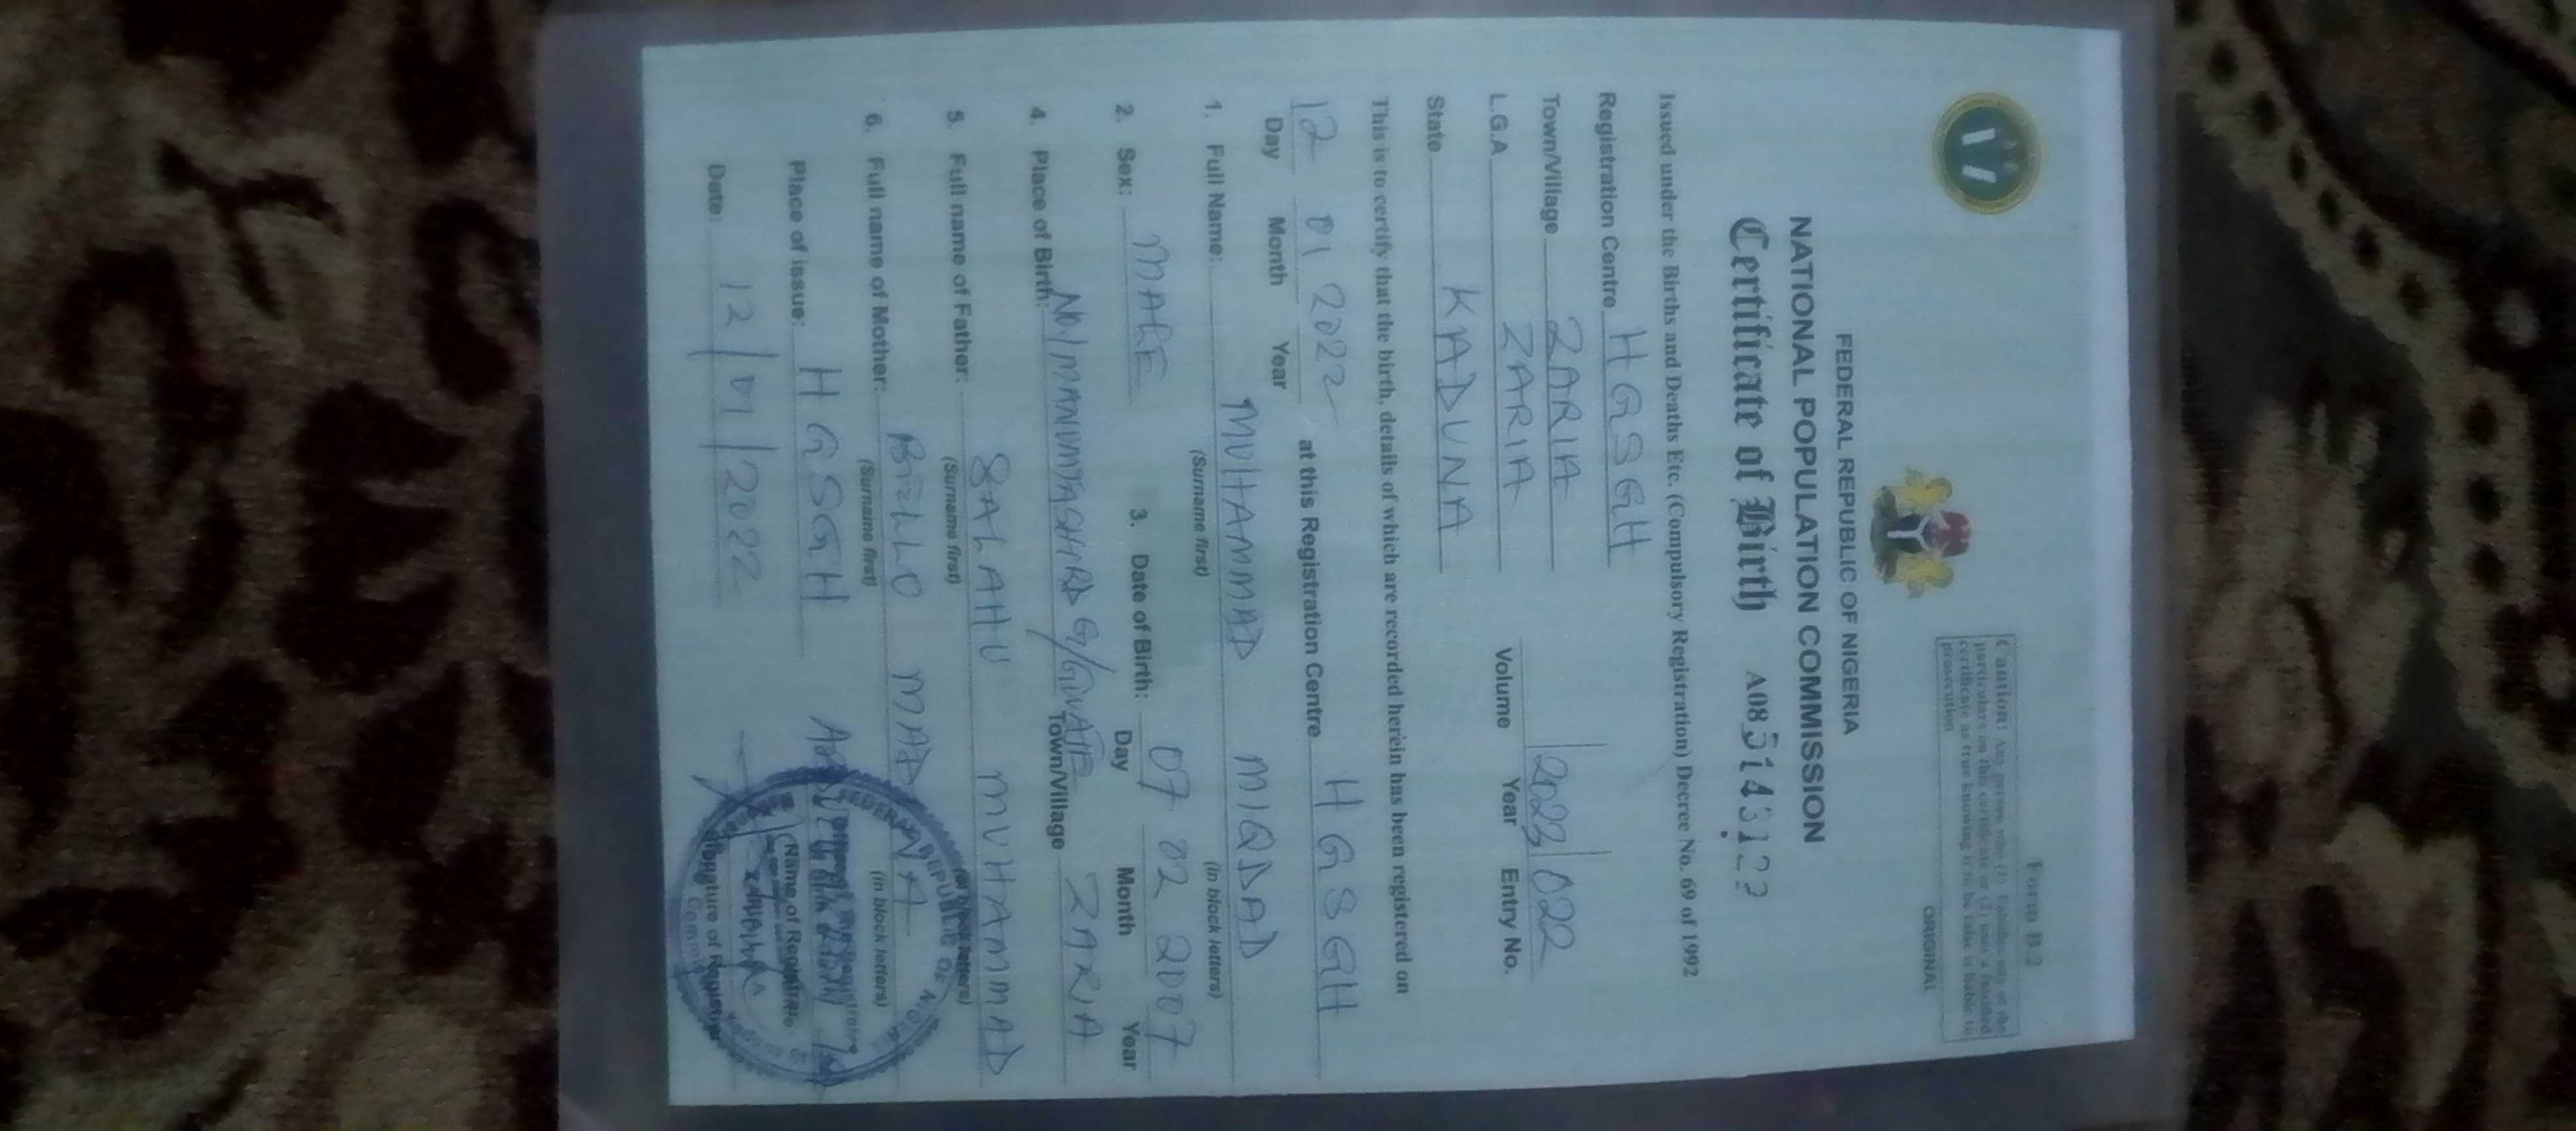 Form B 2
Caution: Any person who (1) falsifies any of the
particulars on this certificate or (2) uses a falsified
certificate as true knowing it to be false is liable to
prosecution
ORIGINAL
FEDERAL REPUBLIC OF NIGERIA
NATIONAL POPULATION COMMISSION
Certificate of Birth
Issued under the Births and Deaths Etc. (Compulsory Registration) Decree No. 69 of 1992
Registration Centre HGSGH
Town/Village ZARIA
L.G.A ZARIA
State KADUNA
2023 022
Volume Year Entry No.
This is to certify that the birth, details of which are recorded herein has been registered on
12 01 2022 at this Registration Centre HGSGH
Day Month Year
1. Full Name: MUHAMMAD MIQDAD
(Surname first) (in block letters)
2. Sex: MALE 3. Date of Birth: 07 02 2007
Day Month Year
4. Place of Birth: Town/Village ZARIA
5. Full name of Father: SALAHU MUHAMMAD
(Surname first)
6. Full name of Mother: BELLO
(Surname first) (in block letters)
Place of issue: HGSGH
Name of Registrar
Date: 12/01/2022
Signature of Registrar
FEDERAL REPUBLIC OF NIGERIA